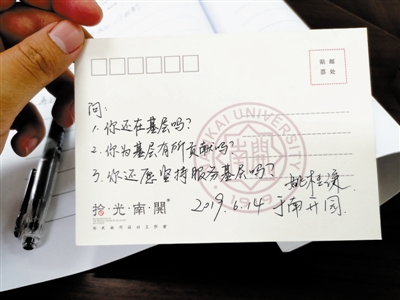 贴邮
票处
问:
1. 你还在基层吗?
2. 你为基层有所贡献吗?
3. 你还愿坚持服务基层吗?
NANKAI UNIVERSITY
南開
1919
2019.6.14 于南开园
拾·光·南·開